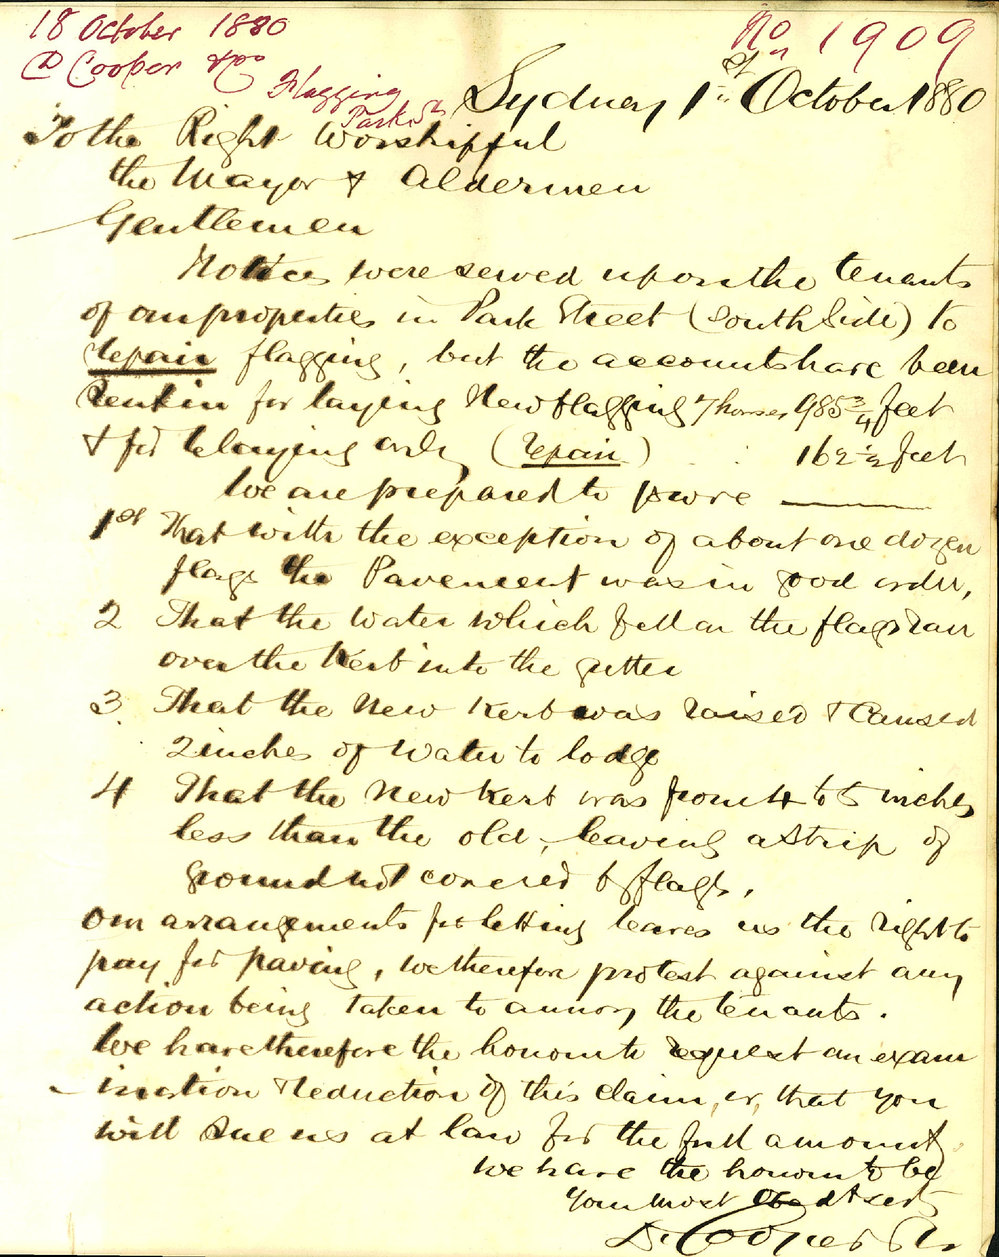 18 October 1880
No 1909
D Cooper & Co
Flagging
Park St
Sydney 1st October 1880
To the Right Worshipful
the Mayor & Aldermen
Gentlemen
Notices were served upon the tenants
of our properties in Park Street (South Side) to
repair flagging, but the accounts have been
sent in for laying New flagging 7 houses 985 3/4 feet
& for relaying only (repair) . . 162 1/2 feet
We are prepared to prove
1st That with the exception of about one dozen
flags the Pavement was in good order,
2 That the Water which fell on the flags ran
over the Kerb into the gutter
3 That the New Kerb was raised & Caused
2 inches of Water to lodge
4 That the New Kerb was from 4 to 5 inches
less than the old, leaving a strip of
ground not covered by flags.
Our arrangements for letting leaves us the right to
pay for paving, we therefore protest against any
action being taken to annoy the tenants.
We have therefore the honour to request an exam
ination & reduction of this claim, or, that you
will sue us at law for the full amount
We have the honour to be
Your most Obedt Servts
D. Cooper & Co